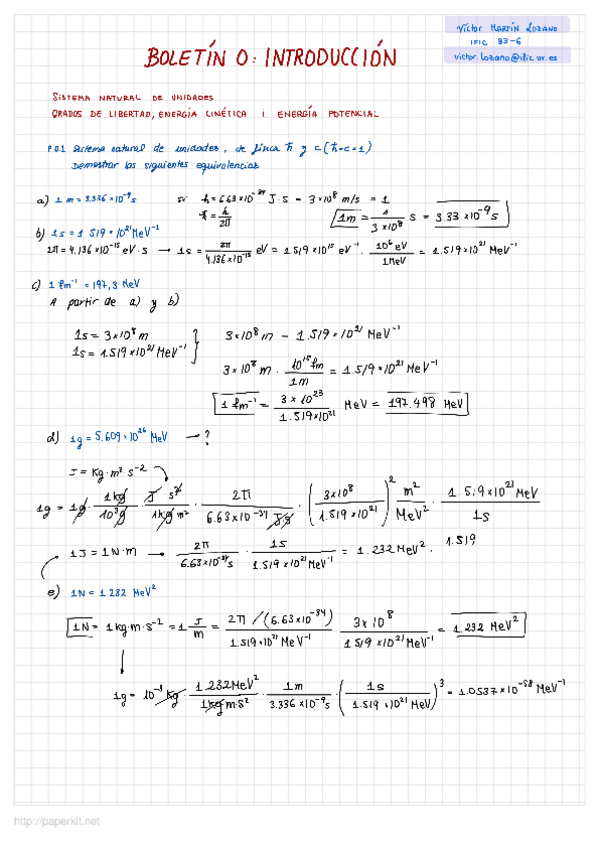 Víctor Martín Lozano
IFIC B3-6
victor.lozano@ific.uv.es
BOLETÍN 0: INTRODUCCIÓN
SISTEMA NATURAL DE UNIDADES
GRADOS DE LIBERTAD, ENERGÍA CINÉTICA i ENERGÍA POTENCIAL
P 0.1 Sistema natural de unidades, se fija ħ y c (ħ=c=1)
Demostrar las siguientes equivalencias
a) 1 m = 3.336 × 10⁻⁹ s si h = 6.63 × 10⁻³⁴ J·s – 3 × 10⁸ m/s = 1
ħ = h/2π 1m = 1/(3×10⁸) s = 3.33 × 10⁻⁹ s
b) 1s = 1.519 × 10²¹ MeV⁻¹
2π = 4.136 × 10⁻¹⁵ eV·s → 1s = 2π/(4.136×10⁻¹⁵) eV = 1.519 × 10¹⁵ eV⁻¹ · 10⁶ eV/1MeV = 1.519 × 10²¹ MeV⁻¹
c) 1 fm⁻¹ = 197,3 MeV
A partir de a) y b)
1s = 3 × 10⁸ m } 3×10⁸ m – 1.519 × 10²¹ MeV⁻¹
1s = 1.519 × 10²¹ MeV⁻¹
3 × 10⁸ m · 10¹⁵ fm/1m = 1.519 × 10²¹ MeV⁻¹
1 fm⁻¹ = 3 × 10²³/1.519×10²¹ MeV = 197.498 MeV
d) 1g = 5.609 × 10²⁶ MeV → ?
J = Kg·m² s⁻²
1g = 1g · 1kg/10³g · J s²/1kg m² · 2π/6.63×10⁻³⁴ J·s · (3×10⁸/1.519×10²¹)² m²/MeV² · 1.519×10²¹ MeV/1s
1J = 1N·m → 2π/6.63×10⁻³⁴s · 1s/1.519×10²¹ MeV⁻¹ = 1.232 MeV² · 1.519
e) 1N = 1.282 MeV²
1N = 1kg·m·s⁻² = 1 J/m = 2π/(6.63×10⁻³⁴)/1.519×10²¹ MeV⁻¹ 3×10⁸/1.519×10²¹ MeV⁻¹ = 1.232 MeV²
1g = 10⁻³ kg · 1.232MeV²/1kg m·s² · 1m/3.336×10⁻⁹s · (1s/1.519×10²¹ MeV)³ = 1.0537×10⁻⁵⁸ MeV⁻¹
http://paperkit.net